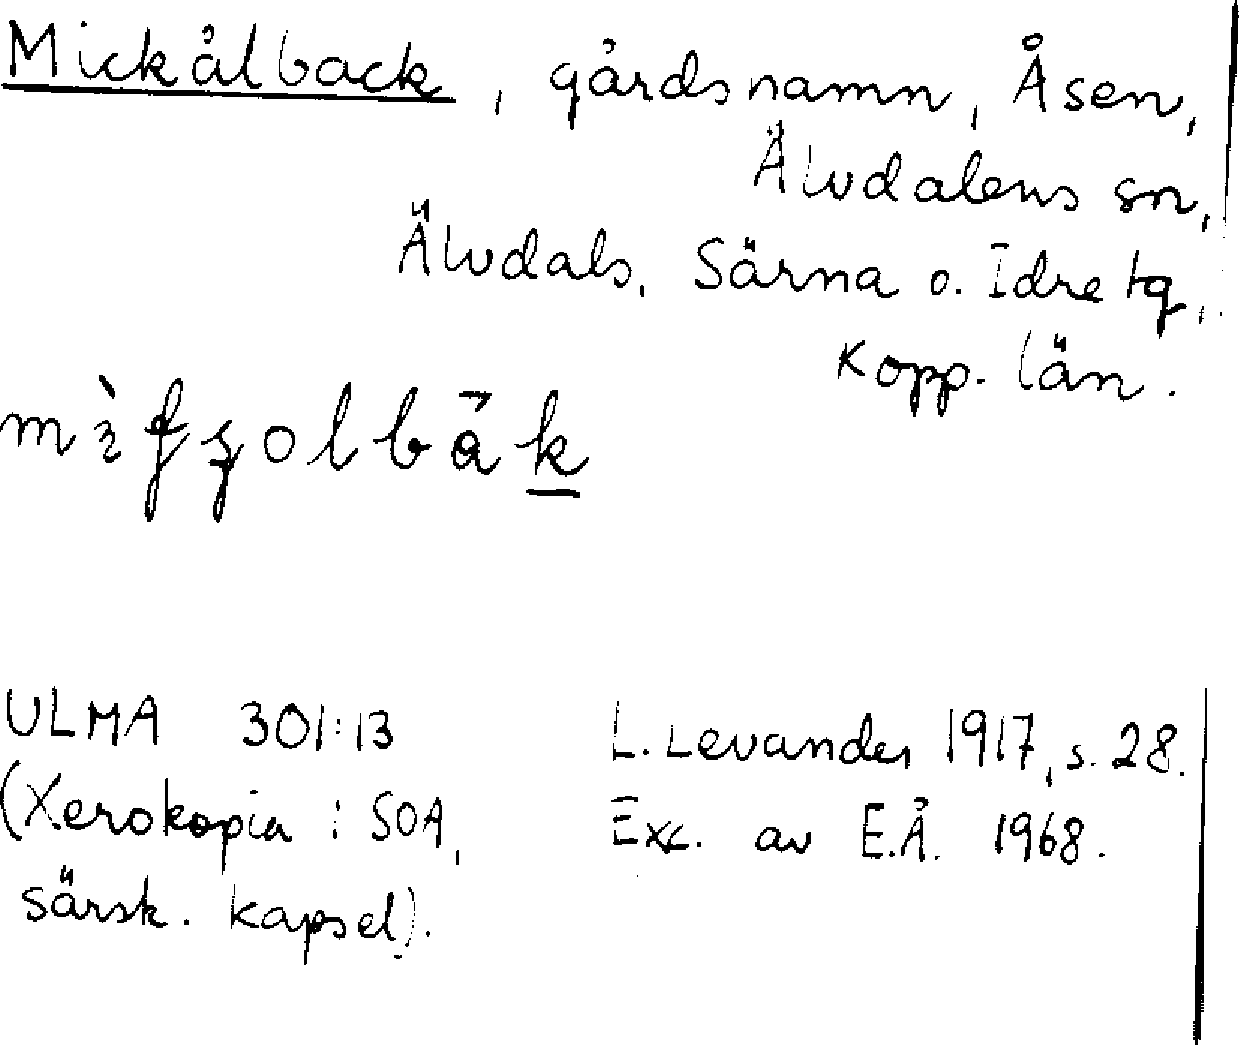 Mickålback, gårdsnamn, Åsen,
Älvdalens sn,
Älvdals, Särna o. Idre tg,
Kopp. län.
ULMA 301:13
(Xerokopia i SOA,
särsk. kapsel).
L. Levander 1917, s. 28.
Exc. av E.Å. 1968.